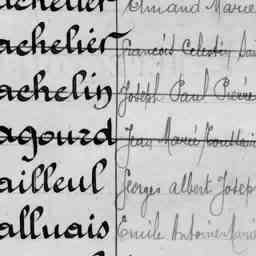 achelier Armand Marie
achelier François Celestin
achelin Joseph Paul Pierre
agourd Jean Marie Toussain
ailleul Georges Albert Josep
alluais Emile Antoine Marie